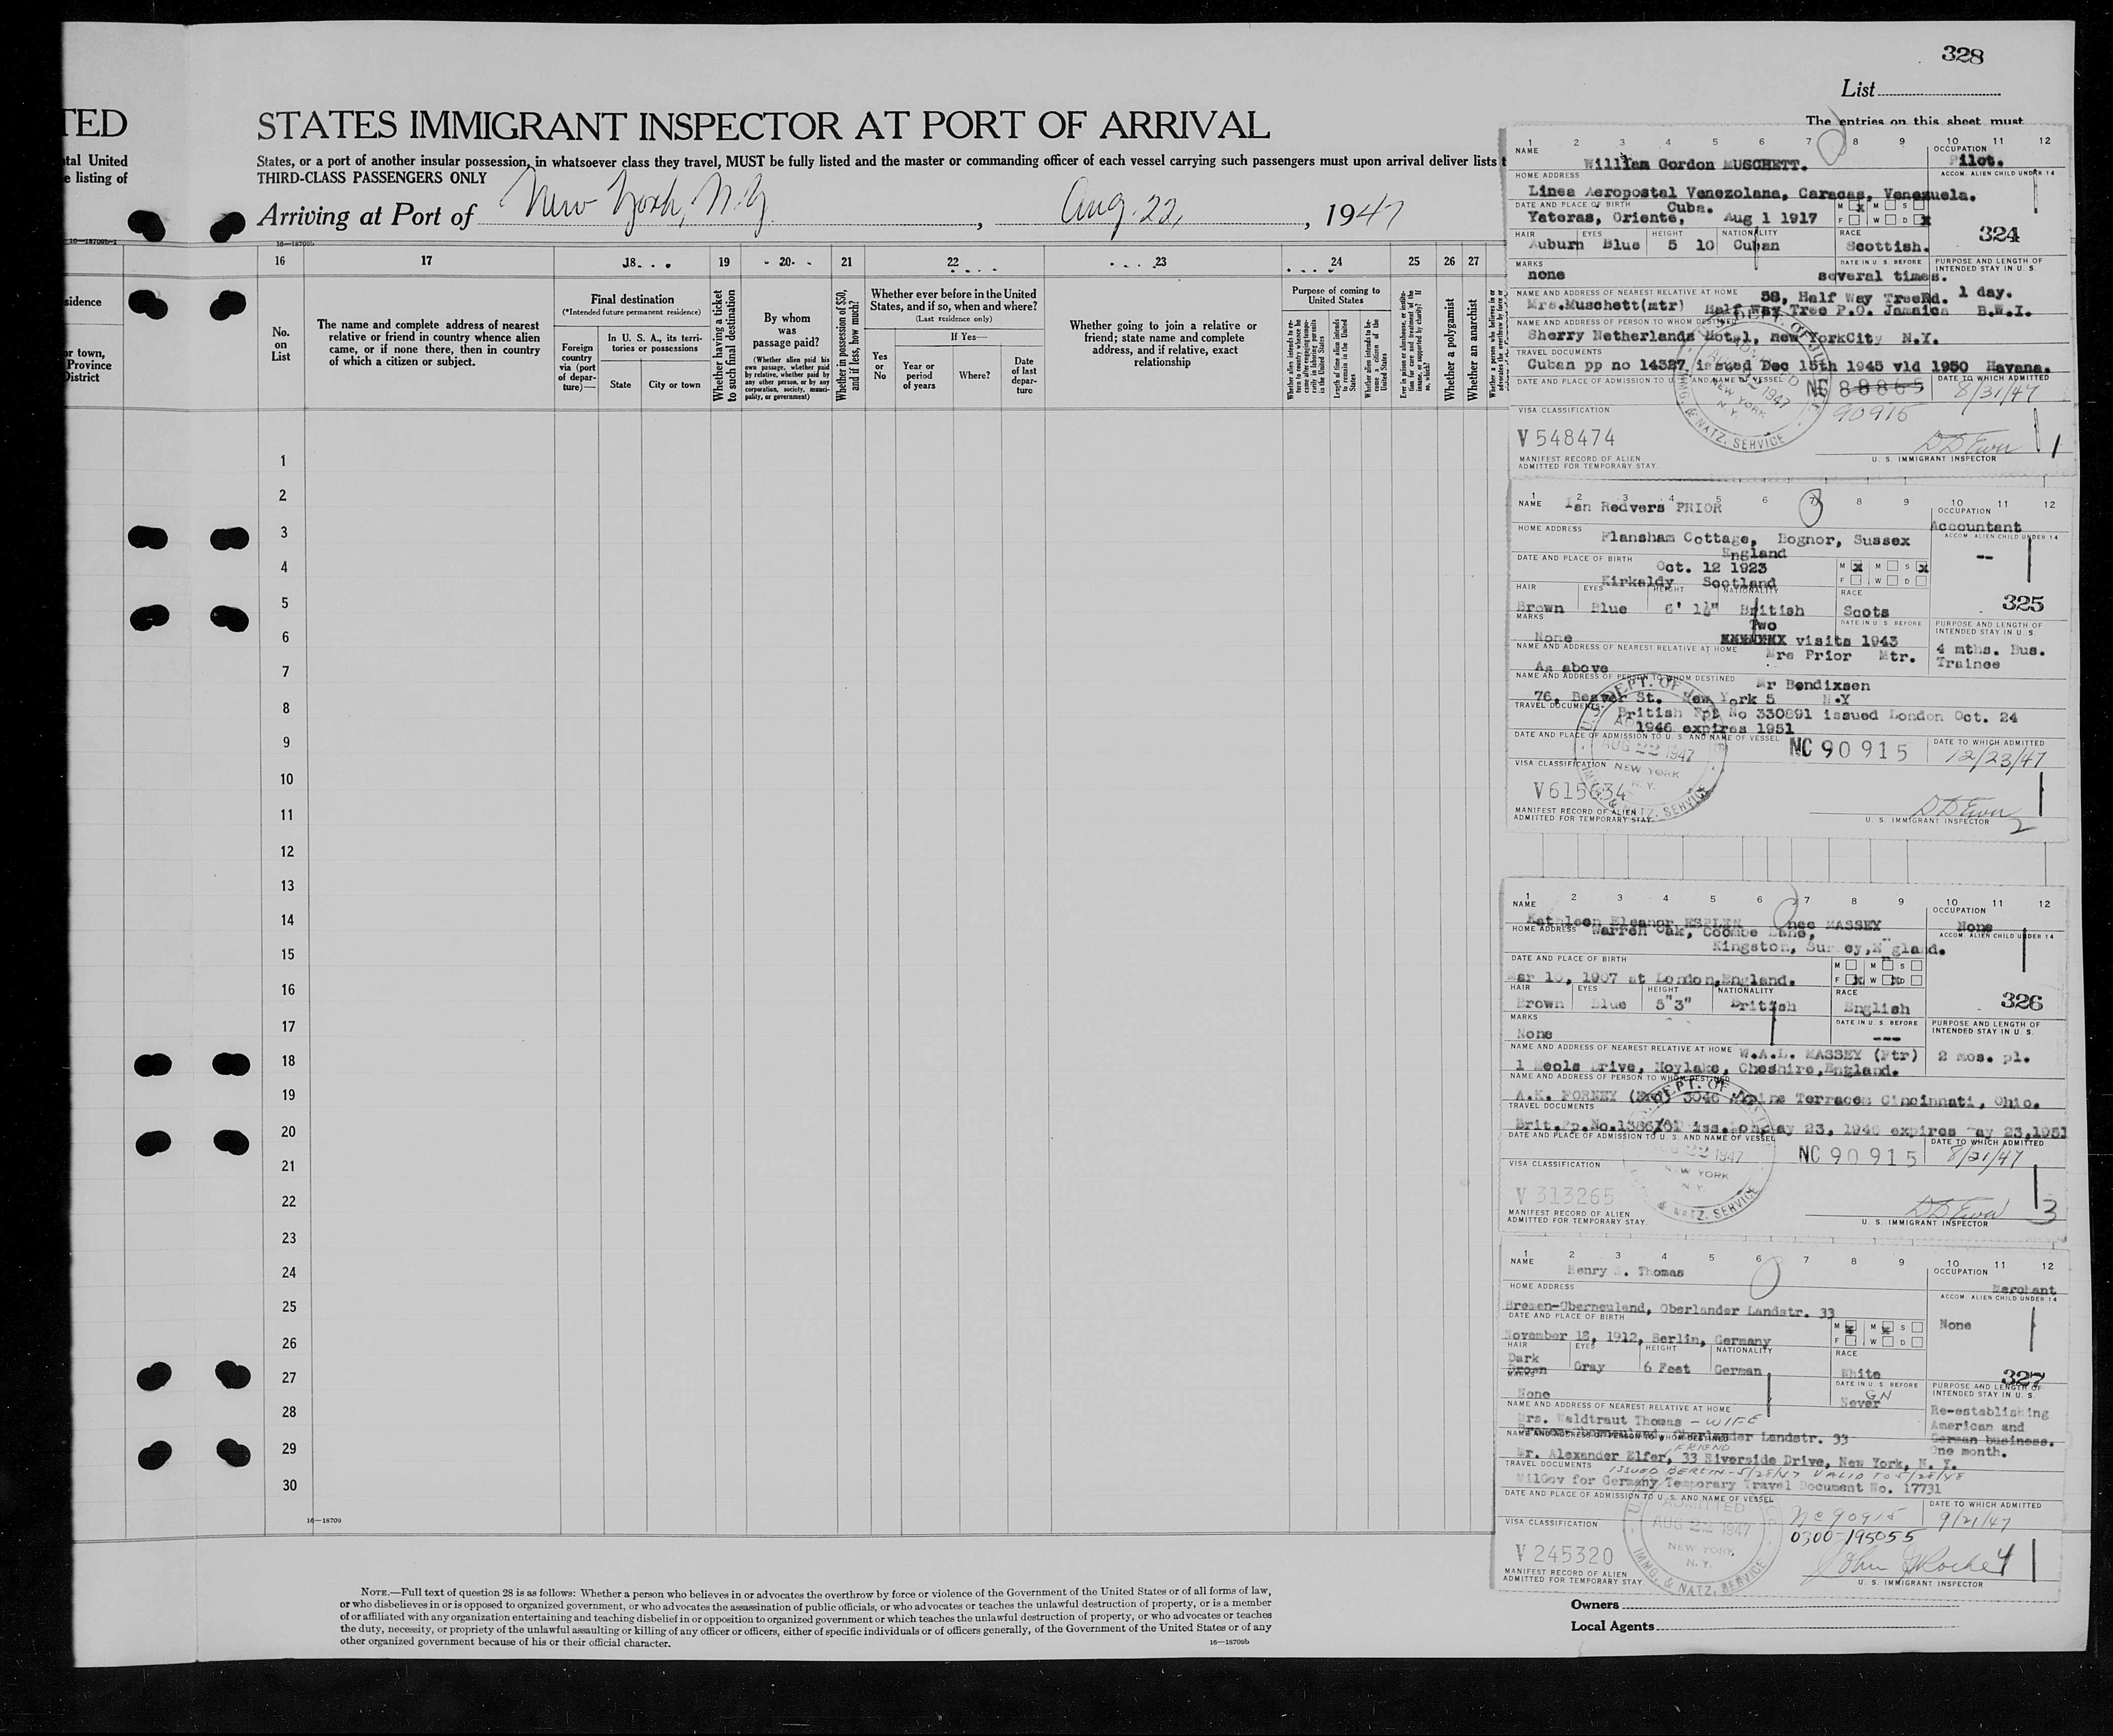 328
List
TED
STATES IMMIGRANT INSPECTOR AT PORT OF ARRIVAL
The entries on this sheet must
tal United
e listing of
States, or a port of another insular possession, in whatsoever class they travel, MUST be fully listed and the master or commanding officer of each vessel carrying such passengers must upon arrival deliver lists t
THIRD-CLASS PASSENGERS ONLY
Arriving at Port of New York, N.Y. , Aug. 22, , 1947
16—18709b-1
16—18709b
16 17 18 19 20 21 22 23 24 25 26 27
sidence
or town,
Province
District
No. on List
The name and complete address of nearest relative or friend in country whence alien came, or if none there, then in country of which a citizen or subject.
Final destination
(*Intended future permanent residence)
Foreign country via (port of depar- ture)—
In U. S. A., its terri- tories or possessions
State
City or town
Whether having a ticket to such final destination
By whom was passage paid?
(Whether alien paid his own passage, whether paid by relative, whether paid by any other person, or by any corporation, society, munici- pality, or government)
Whether in possession of $50, and if less, how much?
Whether ever before in the United States, and if so, when and where?
(Last residence only)
Yes or No
If Yes—
Year or period of years
Where?
Date of last depar- ture
Whether going to join a relative or friend; state name and complete address, and if relative, exact relationship
Purpose of coming to United States
Whether a polygamist
Whether an anarchist
1
2
3
4
5
6
7
8
9
10
11
12
13
14
15
16
17
18
19
20
21
22
23
24
25
26
27
28
29
30
16—18709
NOTE.—Full text of question 28 is as follows: Whether a person who believes in or advocates the overthrow by force or violence of the Government of the United States or of all forms of law,
or who disbelieves in or is opposed to organized government, or who advocates the assassination of public officials, or who advocates or teaches the unlawful destruction of property, or is a member
of or affiliated with any organization entertaining and teaching disbelief in or opposition to organized government or which teaches the unlawful destruction of property, or who advocates or teaches
the duty, necessity, or propriety of the unlawful assaulting or killing of any officer or officers, either of specific individuals or of officers generally, of the Government of the United States or of any
other organized government because of his or their official character.
16—18709b
1 2 3 4 5 6 7 8 9 10 11 12
NAME William Gordon MUSCHETT.
OCCUPATION Pilot.
HOME ADDRESS
ACCOM. ALIEN CHILD UNDER 14
Linea Aeropostal Venezolana, Caracas, Venezuela.
DATE AND PLACE OF BIRTH Cuba.
Yateras, Oriente, Aug 1 1917
M M S
F W D
HAIR EYES HEIGHT NATIONALITY RACE
Auburn Blue 5 10 Cuban Scottish.
324
MARKS DATE IN U. S. BEFORE PURPOSE AND LENGTH OF INTENDED STAY IN U. S.
none several times.
NAME AND ADDRESS OF NEAREST RELATIVE AT HOME 58, Half Way TreeRd. 1 day.
Mrs.Muschett(mtr) Half Way Tree P.O. Jamaica B.W.I.
NAME AND ADDRESS OF PERSON TO WHOM DESTINED
Sherry Netherlands Hotel, new YorkCity N.Y.
TRAVEL DOCUMENTS
Cuban pp no 14327 issued Dec 15th 1945 vld 1950 Havana.
DATE AND PLACE OF ADMISSION TO U. S. AND NAME OF VESSEL NC 88865 DATE TO WHICH ADMITTED
90915 8/31/47
VISA CLASSIFICATION
V 548474
MANIFEST RECORD OF ALIEN
ADMITTED FOR TEMPORARY STAY.
U. S. IMMIGRANT INSPECTOR
1
1 2 3 4 5 6 7 8 9 10 11 12
NAME Ian Redvers PRIOR
OCCUPATION
Accountant
HOME ADDRESS
ACCOM. ALIEN CHILD UNDER 14
Flansham Cottage, Bognor, Sussex
--
DATE AND PLACE OF BIRTH England
Oct. 12 1923
Kirkaldy Scotland
M M S
F W D
HAIR EYES HEIGHT NATIONALITY RACE
Brown Blue 6' 1½" British Scots
325
MARKS DATE IN U. S. BEFORE PURPOSE AND LENGTH OF INTENDED STAY IN U. S.
Two
None visits 1943
NAME AND ADDRESS OF NEAREST RELATIVE AT HOME Mrs Prior Mtr.
4 mths. Bus.
Trainee
As above
NAME AND ADDRESS OF PERSON TO WHOM DESTINED Mr Bendixsen
76, Beaver St. New York 5 N.Y
TRAVEL DOCUMENTS British Ppt No 330891 issued London Oct. 24
1946 expires 1951
DATE AND PLACE OF ADMISSION TO U. S. AND NAME OF VESSEL NC 90915 DATE TO WHICH ADMITTED
AUG 22 1947
12/23/47
VISA CLASSIFICATION NEW YORK N. Y.
V615634
IMMG. & NATZ. SERVICE
MANIFEST RECORD OF ALIEN
ADMITTED FOR TEMPORARY STAY.
U. S. IMMIGRANT INSPECTOR
2
1 2 3 4 5 6 7 8 9 10 11 12
NAME
OCCUPATION
Kathleen Eleanor ESPLEN nee MASSEY None
HOME ADDRESS Warren Oak, Coombe Lane,
ACCOM. ALIEN CHILD UNDER 14
Kingston, Surrey, England.
DATE AND PLACE OF BIRTH
Mar 10, 1907 at London,England.
M M S
F W D
HAIR EYES HEIGHT NATIONALITY RACE
Brown Blue 5"3" British English
326
MARKS DATE IN U. S. BEFORE PURPOSE AND LENGTH OF INTENDED STAY IN U. S.
None ---
NAME AND ADDRESS OF NEAREST RELATIVE AT HOME W.A.L. MASSEY (Ftr) 2 mos. pl.
1 Meols Drive, Hoylake, Cheshire,England.
NAME AND ADDRESS OF PERSON TO WHOM DESTINED
A.K. FORNEY 3046 Alpine Terrace Cincinnati, Ohio.
TRAVEL DOCUMENTS
Brit.Pp.No. iss. May 23, 1946 expires May 23,1951
DATE AND PLACE OF ADMISSION TO U. S. AND NAME OF VESSEL NC 90915 DATE TO WHICH ADMITTED
22 1947
8/21/47
VISA CLASSIFICATION NEW YORK N. Y.
V 313265
& NATZ. SERVICE
MANIFEST RECORD OF ALIEN
ADMITTED FOR TEMPORARY STAY.
U. S. IMMIGRANT INSPECTOR
3
1 2 3 4 5 6 7 8 9 10 11 12
NAME Henry . Thomas
OCCUPATION
HOME ADDRESS
Merchant
ACCOM. ALIEN CHILD UNDER 14
Bremen-Oberneuland, Oberlander Landstr. 33
DATE AND PLACE OF BIRTH
None
November 12, 1912, Berlin, Germany
M M S
F W D
HAIR EYES HEIGHT NATIONALITY RACE
Dark
Brown Gray 6 Feet German White
327
MARKS DATE IN U. S. BEFORE PURPOSE AND LENGTH OF INTENDED STAY IN U. S.
None GN Never
NAME AND ADDRESS OF NEAREST RELATIVE AT HOME
Re-establishing
American and
German business.
One month.
Mrs. Waldtraut Thomas - WIFE
Bremen-Oberneuland, Oberlander Landstr. 33
NAME AND ADDRESS OF PERSON TO WHOM DESTINED
FRIEND
Mr. Alexander Elfer, 33 Riverside Drive, New York, N. Y.
TRAVEL DOCUMENTS ISSUED BERLIN - 5/28/47 VALID TO 5/28/48
MilGov for Germany Temporary Travel Document No. 17731
DATE AND PLACE OF ADMISSION TO U. S. AND NAME OF VESSEL DATE TO WHICH ADMITTED
ADMITTED
AUG 22 1947
NC 90915 9/21/47
VISA CLASSIFICATION NEW YORK N. Y. 0300-195055
V 245320
IMMG. & NATZ. SERVICE
MANIFEST RECORD OF ALIEN
ADMITTED FOR TEMPORARY STAY.
U. S. IMMIGRANT INSPECTOR
4
Owners
Local Agents